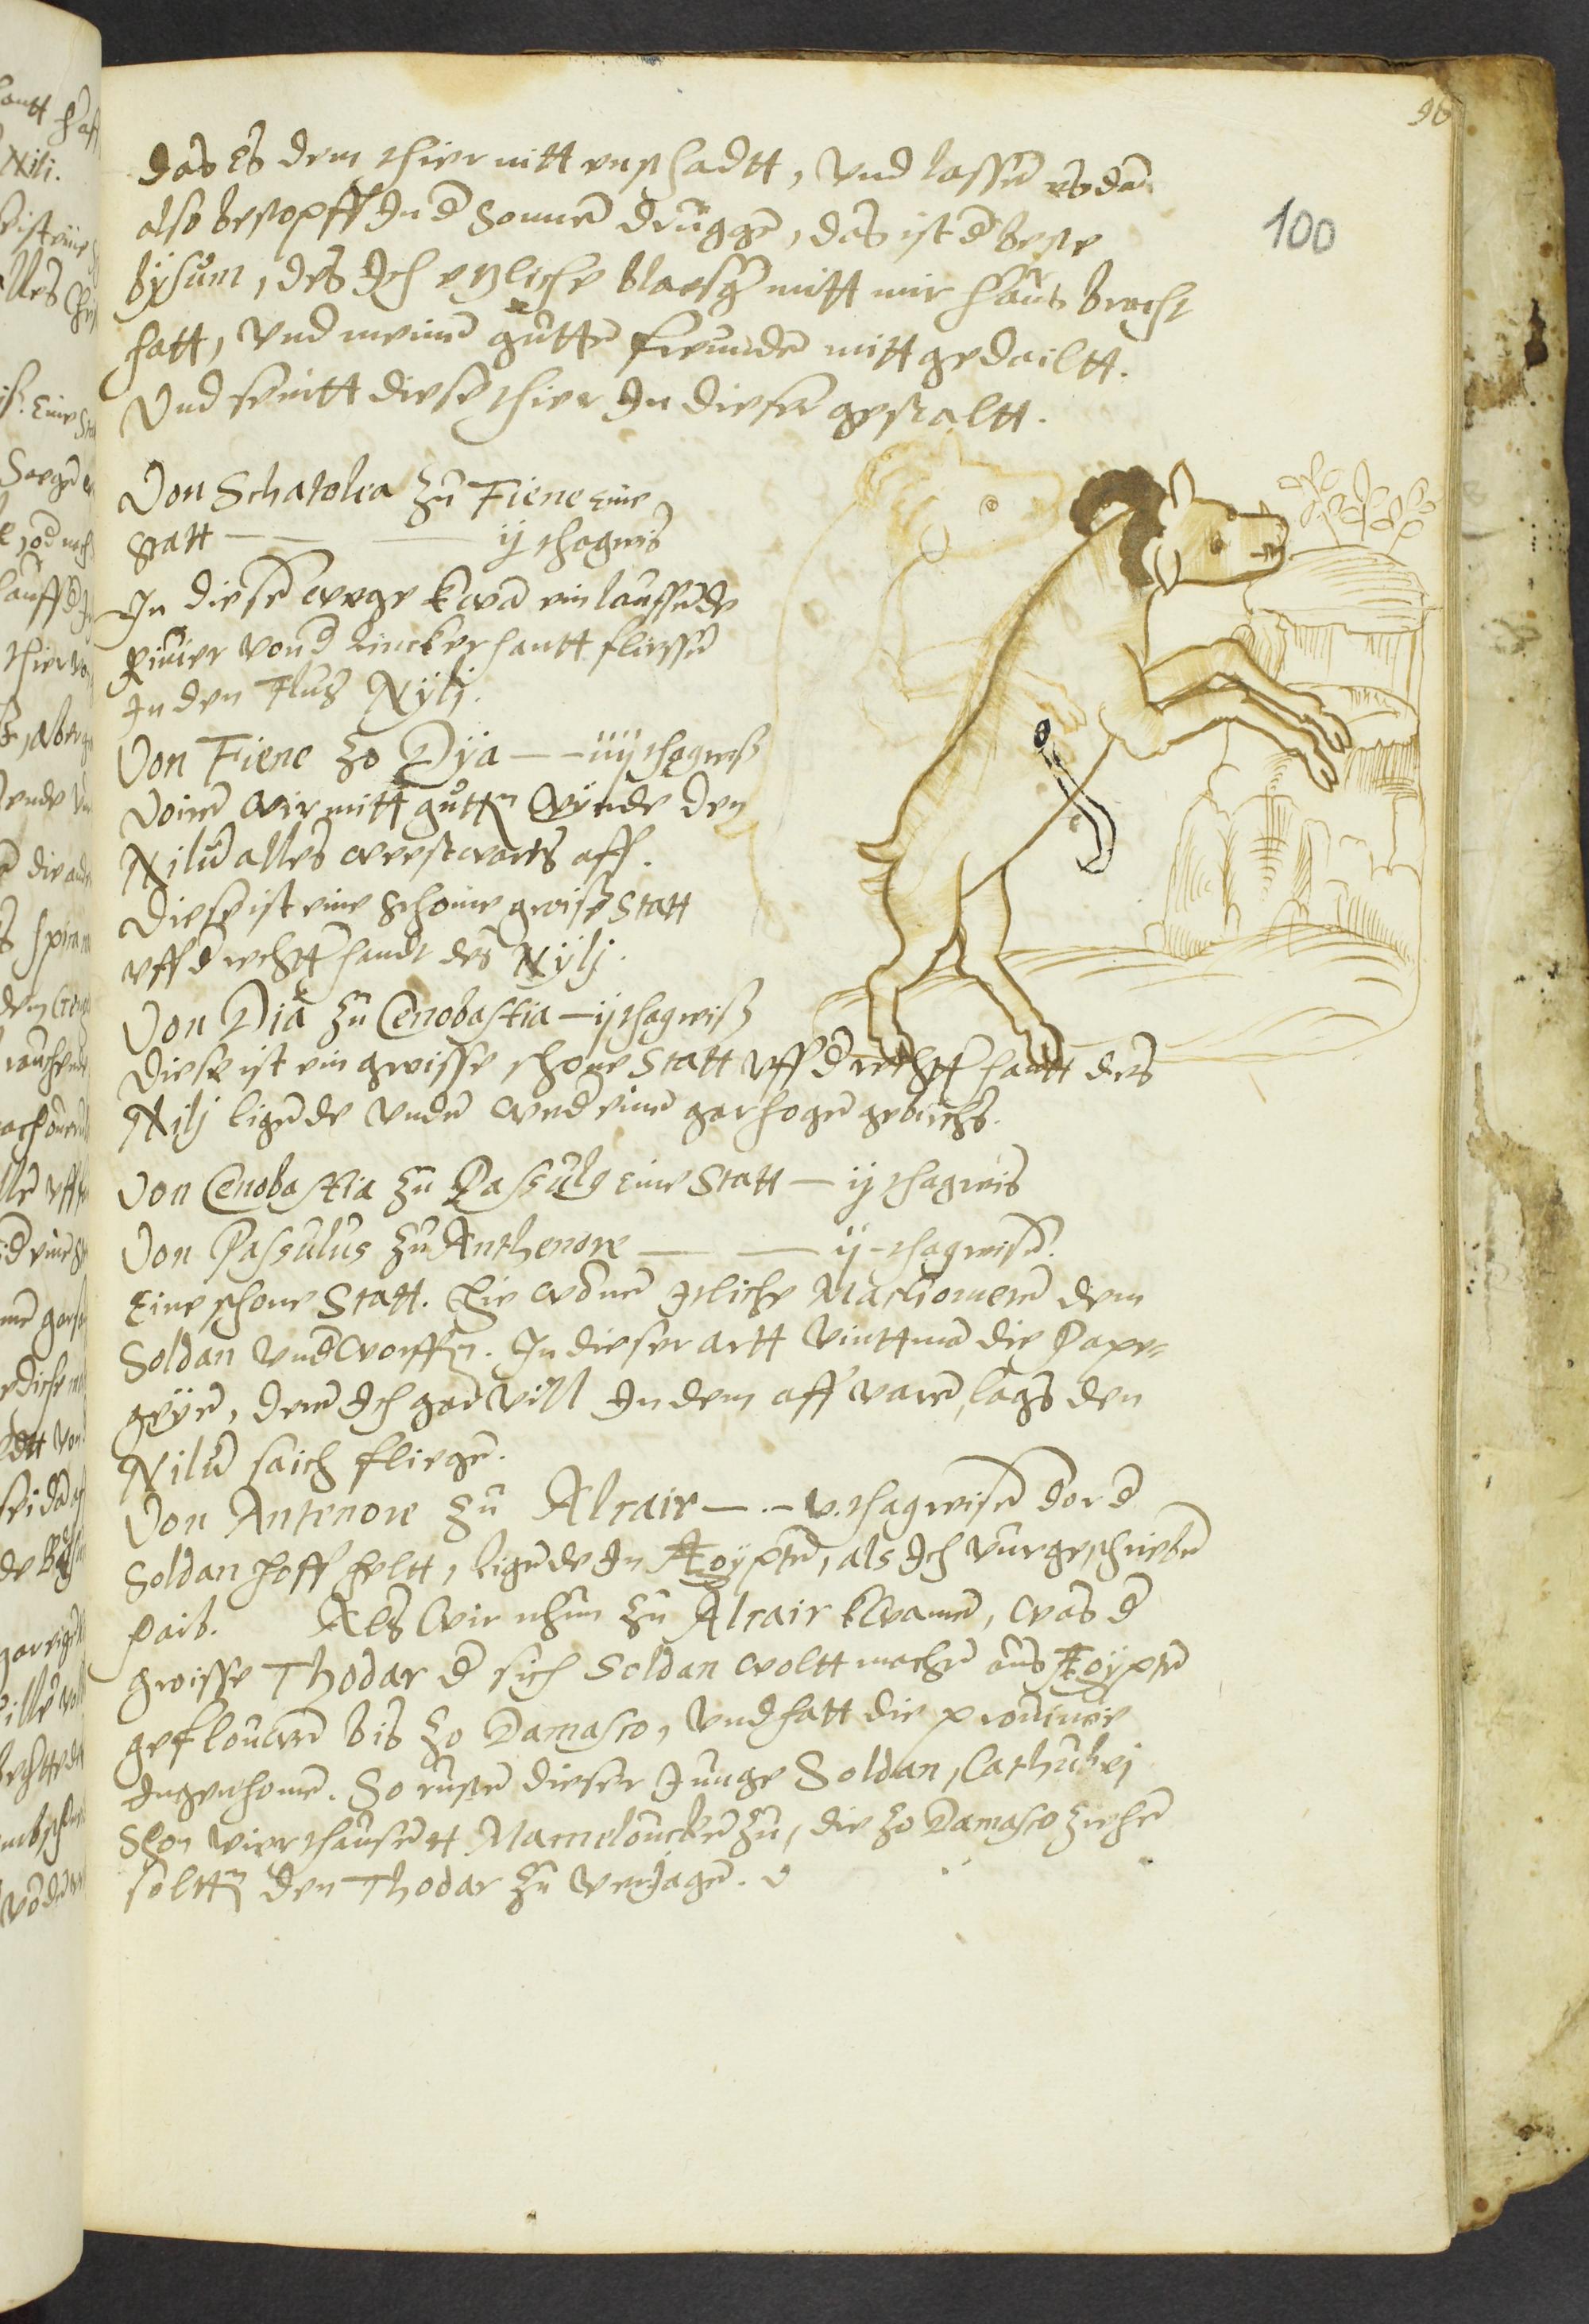 98
100
das Es dem thier nitt enschadtt, Vnd lassen es dan
also bestopfft In d Sonnen druggen, das ist d beste
bysum, des Ich etzliche blaesg mitt mir hauß bracht
hatt, Vnd meinen gutten freunden mitt gedailtt.
Vnd seintt diese thier In dieser gestaltt.
Von Schatolea zu Fiene Eine
Statt — — ij thagreis
In diesem wege kwam ein lauffende
Riuier von d lincker hantt fliessen
In den Fluß Nylj.
Von Fiene zo Dya — — iiij thagreiß
Voiren wir mitt gutten Wynde den
Nilum alles westwartz aff.
Diese ist eine Schoine groiße Statt
vff d rechtter handt des Nylj.
Von Dia zu Cenobastia — ij thagreiß
Diese ist ein groisse schone Statt vff d rechtter hantt des
Nilj ligende vnden wed einen gar hogen gebirchs.
Von Cenobastia zu Passulg Eine Statt — ij thagreis
Von Passulus zu Anthenore — — ij - thagreisen.
Eine schone Statt. Hie wonen Itliche Machomeren dem
Soldan vnderworffen. In dieser artt vintt man die Pape-
geyen, deren Ich gar vill In dem aff varen, lags den
Nilum saich fliegen.
Von Antenore zu Alcair — . — v. thagreisen dor d
Soldan hoff heltt, ligende In Aegypten, als Ich vurgeschrieben
hais. Als wir nhun zu Alcair kwamen, was d
groisse Thodar d sich Soldan woltt machen auß Aegypten
geflouwen bis zo Damasco, vnd hatt die prouincie
Ingenhomen. So rusten dieser Junge Soldan, Cathubej
Son vier thausentt Mameloucken zu, die zo Damasco ziehen
soltten den Thodar zu veriagen.